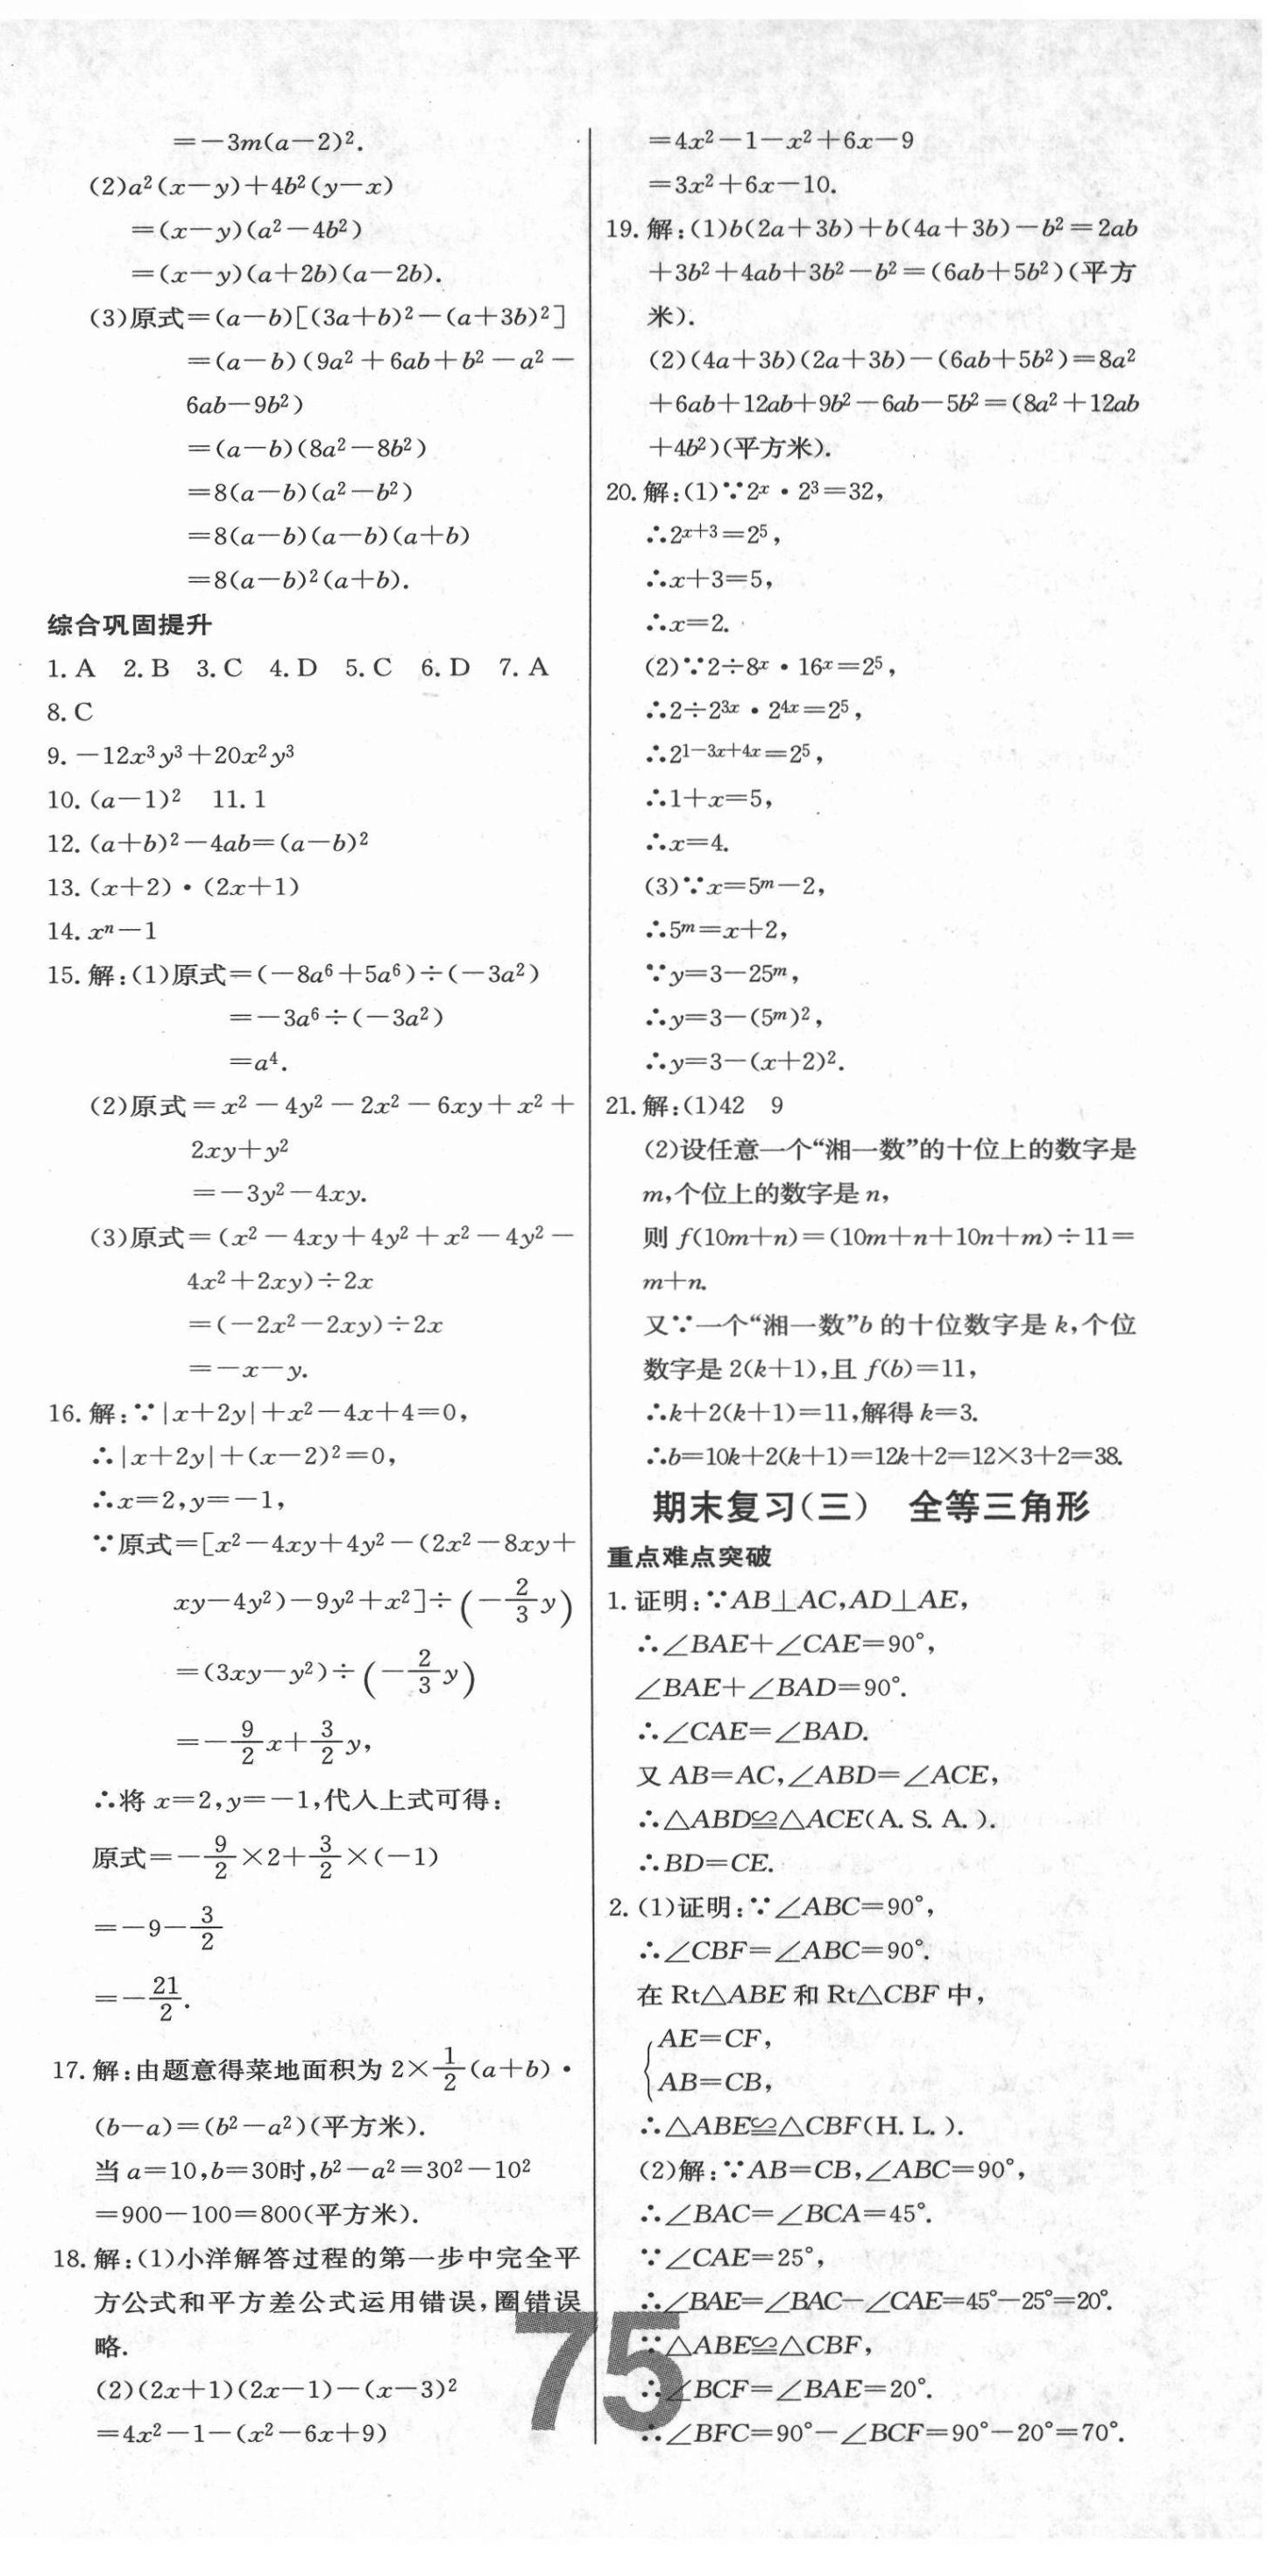 =-3m(a-2)².
(2)a²(x-y)+4b²(y-x)
=(x-y)(a²-4b²)
=(x-y)(a+2b)(a-2b).
(3)原式=(a-b)[(3a+b)²-(a+3b)²]
=(a-b)(9a²+6ab+b²-a²-
6ab-9b²)
=(a-b)(8a²-8b²)
=8(a-b)(a²-b²)
=8(a-b)(a-b)(a+b)
=8(a-b)²(a+b).
综合巩固提升
1. A 2. B 3. C 4. D 5. C 6. D 7. A
8. C
9. -12x³y³+20x²y³
10. (a-1)² 11. 1
12. (a+b)²-4ab=(a-b)²
13. (x+2)·(2x+1)
14. xⁿ-1
15. 解:(1)原式=(-8a⁶+5a⁶)÷(-3a²)
=-3a⁶÷(-3a²)
=a⁴.
(2)原式=x²-4y²-2x²-6xy+x²+
2xy+y²
=-3y²-4xy.
(3)原式=(x²-4xy+4y²+x²-4y²-
4x²+2xy)÷2x
=(-2x²-2xy)÷2x
=-x-y.
16. 解:∵|x+2y|+x²-4x+4=0,
∴|x+2y|+(x-2)²=0,
∴x=2,y=-1,
∵原式=[x²-4xy+4y²-(2x²-8xy+
xy-4y²)-9y²+x²]÷(-2/3 y)
=(3xy-y²)÷(-2/3 y)
=-9/2 x+3/2 y,
∴将 x=2,y=-1,代入上式可得:
原式=-9/2×2+3/2×(-1)
=-9-3/2
=-21/2.
17. 解:由题意得菜地面积为 2×1/2(a+b)·
(b-a)=(b²-a²)(平方米).
当 a=10,b=30时,b²-a²=30²-10²
=900-100=800(平方米).
18. 解:(1)小洋解答过程的第一步中完全平
方公式和平方差公式运用错误,圈错误
略.
(2)(2x+1)(2x-1)-(x-3)²
=4x²-1-(x²-6x+9)
=4x²-1-x²+6x-9
=3x²+6x-10.
19. 解:(1)b(2a+3b)+b(4a+3b)-b²=2ab
+3b²+4ab+3b²-b²=(6ab+5b²)(平方
米).
(2)(4a+3b)(2a+3b)-(6ab+5b²)=8a²
+6ab+12ab+9b²-6ab-5b²=(8a²+12ab
+4b²)(平方米).
20. 解:(1)∵2ˣ·2³=32,
∴2ˣ⁺³=2⁵,
∴x+3=5,
∴x=2.
(2)∵2÷8ˣ·16ˣ=2⁵,
∴2÷2³ˣ·2⁴ˣ=2⁵,
∴2¹⁻³ˣ⁺⁴ˣ=2⁵,
∴1+x=5,
∴x=4.
(3)∵x=5ᵐ-2,
∴5ᵐ=x+2,
∵y=3-25ᵐ,
∴y=3-(5ᵐ)²,
∴y=3-(x+2)².
21. 解:(1)42 9
(2)设任意一个“湘一数”的十位上的数字是
m,个位上的数字是 n,
则 f(10m+n)=(10m+n+10n+m)÷11=
m+n.
又∵一个“湘一数”b 的十位数字是 k,个位
数字是 2(k+1),且 f(b)=11,
∴k+2(k+1)=11,解得 k=3.
∴b=10k+2(k+1)=12k+2=12×3+2=38.
期末复习(三) 全等三角形
重点难点突破
1. 证明:∵AB⊥AC,AD⊥AE,
∴∠BAE+∠CAE=90°,
∠BAE+∠BAD=90°.
∴∠CAE=∠BAD.
又 AB=AC,∠ABD=∠ACE,
∴△ABD≌△ACE(A. S. A. ).
∴BD=CE.
2. (1)证明:∵∠ABC=90°,
∴∠CBF=∠ABC=90°.
在 Rt△ABE 和 Rt△CBF 中,
{AE=CF,
AB=CB,
∴△ABE≌△CBF(H. L. ).
(2)解:∵AB=CB,∠ABC=90°,
∴∠BAC=∠BCA=45°.
∵∠CAE=25°,
∴∠BAE=∠BAC-∠CAE=45°-25°=20°.
∵△ABE≌△CBF,
∴∠BCF=∠BAE=20°.
∴∠BFC=90°-∠BCF=90°-20°=70°.
75